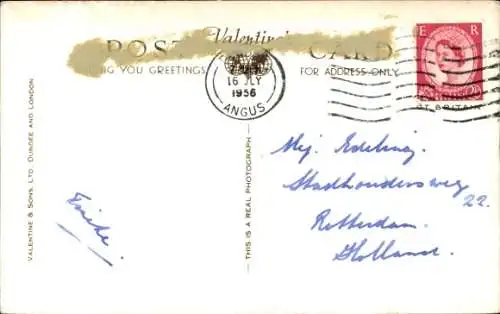 Valentine's
POST CARD
NG YOU GREETINGS
FOR ADDRESS ONLY
16 JLY
1956
ANGUS
E R
VALENTINE & SONS, LTD. DUNDEE AND LONDON
THIS IS A REAL PHOTOGRAPH
Mej. Edeling.
Stadhoudersweg
22.
Rotterdam.
Holland.